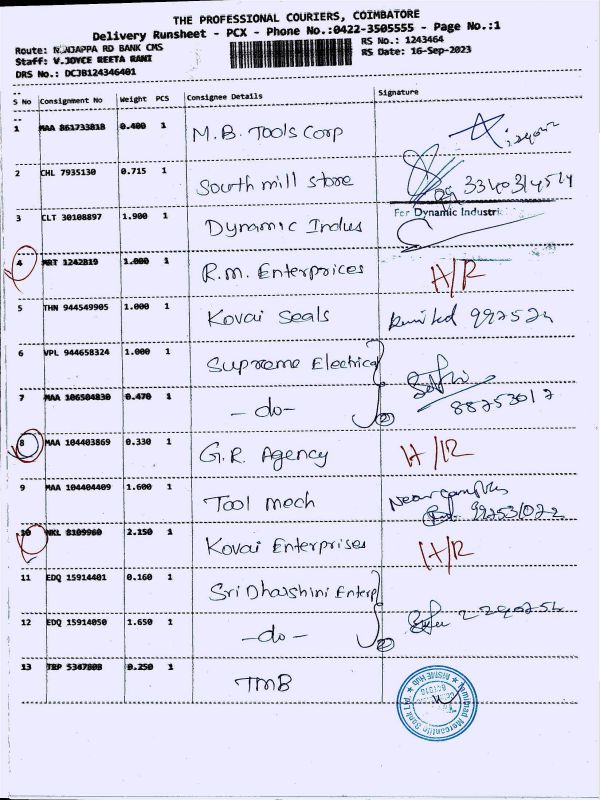 THE PROFESSIONAL COURIERS, COIMBATORE
Delivery Runsheet - PCX - Phone No.:0422-3505555 - Page No.:1
Route: NANJAPPA RD BANK CMS
RS No.: 1243464
Staff: V.JOYCE REETA RANI
RS Date: 16-Sep-2023
DRS No.: DCJB124346401
S No Consignment No Weight PCS Consignee Details Signature
1 MAA 861733818 0.400 1 M.B. Tools Corp
2 CHL 7935130 0.715 1 South mill store
3 CLT 30108897 1.900 1 Dynamic Indus For Dynamic Industri
4 MRT 1242819 1.000 1 R.M. Enterprices H/R
5 THN 944549905 1.000 1 Kovai Seals
6 VPL 944658324 1.000 1 Supreme Electrical
7 MAA 106504830 0.470 1 -do- 2
8 MAA 104403869 0.330 1 G.R. Agency H/R
9 MAA 104404409 1.600 1 Tool mech
10 NKL 8109960 2.150 1 Kovai Enterprises H/R
11 EDQ 15914401 0.160 1 Sri Dharshini Enterp
12 EDQ 15914050 1.650 1 -do- 2
13 TRP 5347808 0.250 1 TMB
Tamilnad Mercantile Bank Ltd. MSME Hub